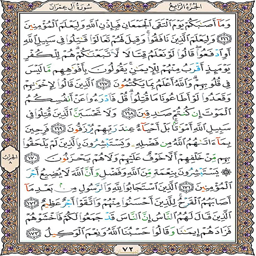 سُورَةُ آلِ عِمْرَانَ الجُزْءُ الرَّابِعُ
وَمَآ أَصَٰبَكُمْ يَوْمَ ٱلْتَقَى ٱلْجَمْعَانِ فَبِإِذْنِ ٱللَّهِ وَلِيَعْلَمَ ٱلْمُؤْمِنِينَ
١٦٦ وَلِيَعْلَمَ ٱلَّذِينَ نَافَقُوا۟ وَقِيلَ لَهُمْ تَعَالَوْا۟ قَٰتِلُوا۟ فِى سَبِيلِ ٱللَّهِ
أَوِ ٱدْفَعُوا۟ قَالُوا۟ لَوْ نَعْلَمُ قِتَالًا لَّٱتَّبَعْنَٰكُمْ هُمْ لِلْكُفْرِ
يَوْمَئِذٍ أَقْرَبُ مِنْهُمْ لِلْإِيمَٰنِ يَقُولُونَ بِأَفْوَٰهِهِم مَّا لَيْسَ
فِى قُلُوبِهِمْ وَٱللَّهُ أَعْلَمُ بِمَا يَكْتُمُونَ ١٦٧ ٱلَّذِينَ قَالُوا۟ لِإِخْوَٰنِهِمْ
وَقَعَدُوا۟ لَوْ أَطَاعُونَا مَا قُتِلُوا۟ قُلْ فَٱدْرَءُوا۟ عَنْ أَنفُسِكُمُ
ٱلْمَوْتَ إِن كُنتُمْ صَٰدِقِينَ ١٦٨ وَلَا تَحْسَبَنَّ ٱلَّذِينَ قُتِلُوا۟ فِى
سَبِيلِ ٱللَّهِ أَمْوَٰتًۢا بَلْ أَحْيَآءٌ عِندَ رَبِّهِمْ يُرْزَقُونَ ١٦٩ فَرِحِينَ
بِمَآ ءَاتَىٰهُمُ ٱللَّهُ مِن فَضْلِهِۦ وَيَسْتَبْشِرُونَ بِٱلَّذِينَ لَمْ يَلْحَقُوا۟
بِهِم مِّنْ خَلْفِهِمْ أَلَّا خَوْفٌ عَلَيْهِمْ وَلَا هُمْ يَحْزَنُونَ ١٧٠
۞ يَسْتَبْشِرُونَ بِنِعْمَةٍ مِّنَ ٱللَّهِ وَفَضْلٍ وَأَنَّ ٱللَّهَ لَا يُضِيعُ أَجْرَ
ٱلْمُؤْمِنِينَ ١٧١ ٱلَّذِينَ ٱسْتَجَابُوا۟ لِلَّهِ وَٱلرَّسُولِ مِنۢ بَعْدِ مَآ
أَصَابَهُمُ ٱلْقَرْحُ لِلَّذِينَ أَحْسَنُوا۟ مِنْهُمْ وَٱتَّقَوْا۟ أَجْرٌ عَظِيمٌ ١٧٢
ٱلَّذِينَ قَالَ لَهُمُ ٱلنَّاسُ إِنَّ ٱلنَّاسَ قَدْ جَمَعُوا۟ لَكُمْ فَٱخْشَوْهُمْ
فَزَادَهُمْ إِيمَٰنًا وَقَالُوا۟ حَسْبُنَا ٱللَّهُ وَنِعْمَ ٱلْوَكِيلُ ١٧٣
٧٢